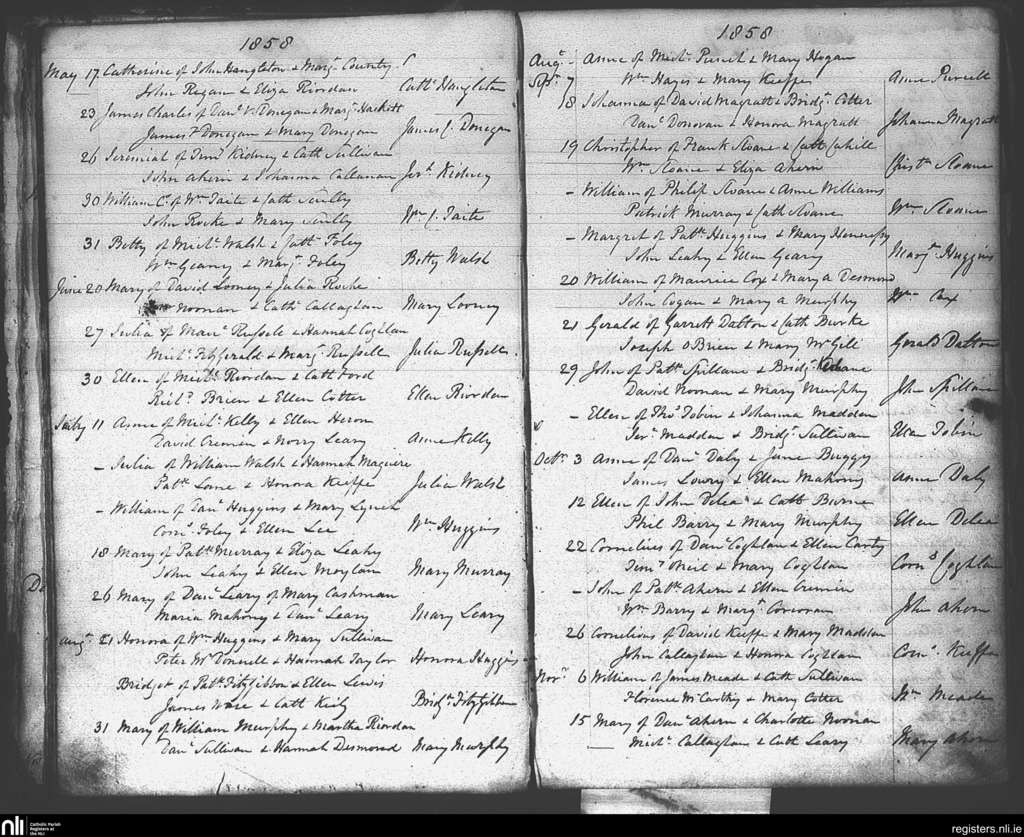 1858
May 17 Catherine of John Hangleton & Margt. Country
John Regan & Eliza Riordan Cathe Hangleton
23 James Charles of Danl. V. Donegan & Margt. Hackett
James Donegan & Mary Donegan James C. Donegan
26 Jeremiah of Timy. Kidney & Cath Sullivan
John Ahern & Johanna Callanan Jerh. Kidney
30 William C. of Wm Taite & Cath Scully
John Roche & Mary Scully Wm C. Taite
31 Betty of Michl. Walsh & Cathe Foley
Wm Geaney & Margt. Foley Betty Walsh
June 20 Mary of David Looney & Julia Roche
Noonan & Cathe Callaghan Mary Looney
27 Julia of Maur. Russell & Hannah Coghlan
Michl. Fitzgerald & Margt. Russell Julia Russell
30 Ellen of Michl. Riordan & Cath Ford
Richd. Brien & Ellen Cotter Ellen Riordan
July 11 Anne of Michl. Kelly & Ellen Heron
David Cremin & Norry Leary Anne Kelly
- Julia of William Walsh & Hannah Maguire
Patk Lane & Honora Keeffe Julia Walsh
- William of Danl Huggins & Mary Lynch
Corns. Foley & Ellen Lee Wm Huggins
18 Mary of Patk Murray & Eliza Leahy
John Leahy & Ellen Moylan Mary Murray
26 Mary of Danl Leary of Mary Cashman
Maria Mahony & Danl Leary Mary Leary
Augt. 21 Honora of Wm Huggins & Mary Sullivan
Peter McDonnell & Hannah Taylor Honora Huggins
Bridget of Patk Fitzgibbon & Ellen Lewis
James Ware & Cath Keily Bridgt. Fitzgibbon
31 Mary of William Murphy & Martha Riordan
Danl Sullivan & Hannah Desmond Mary Murphy
1858
Augt. - Anne of Michl. Purcell & Mary Hogan
Sepr. 7 Wm Hayes & Mary Keeffe Anne Purcell
18 Johanna of David Magrath & Bridgt. Cotter
Danl Donovan & Honora Magrath Johanna Magrath
19 Christopher of Frank Sloane & Cath Cahill
Wm Sloane & Eliza Ahern Christr. Sloane
- William of Philip Sloane & Anne Williams
Patrick Murray & Cath Sloane Wm Sloane
- Margret of Patk Huggins & Mary
John Leahy & Ellen Geary Margt. Huggins
20 William of Maurice Cox & Mary A Desmond
John Cogan & Mary A Murphy Wm Cox
21 Gerald of Garrett Dalton & Cath Burke
Joseph O Brien & Mary McGill Gerald Dalton
29 John of Patk Spillane & Bridgt.
David Noonan & Mary Murphy John Spillane
- Ellen of Thos. Tobin & Johanna Madden
Jerh. Madden & Bridgt. Sullivan Ellen Tobin
Octr. 3 Anne of Danl Daly & Jane Buggy
James Lowry & Ellen Mahony Anne Daly
12 Ellen of John Delea & Cath Burne
Phil Barry & Mary Murphy Ellen Delea
22 Cornelius of Danl Coghlan & Ellen Carty
Timy. Neil & Mary Coghlan Corns Coghlan
- John of Patk Ahern & Ellen Cremin
Wm Barry & Margt. Corcoran John Ahern
26 Cornelius of David Keeffe & Mary Madden
John Callaghan & Honora Coghlan Corns. Keeffe
Novr. 6 William of James Meade & Cath Sullivan
Florence McCarthy & Mary Cotter Wm Meade
15 Mary of Danl Ahern & Charlotte Noonan
Michl. Callaghan & Cath Leary Mary Ahern
nli Catholic Parish Registers at the NLI
registers.nli.ie